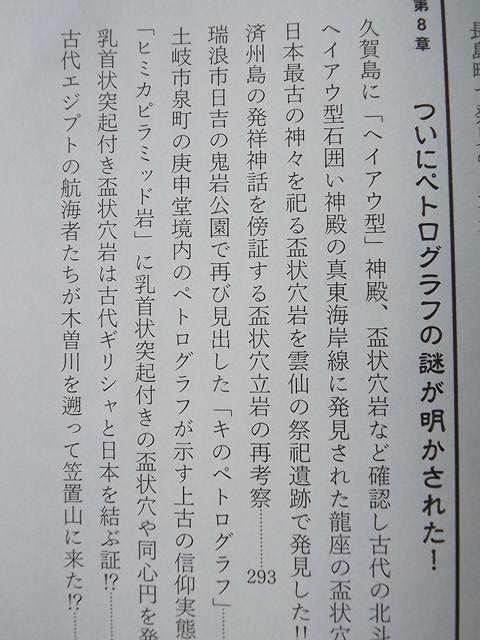 第8章
ついにペトログラフの謎が明かされた!
久賀島に「ヘイアウ型」神殿、盃状穴岩など確認し古代の北斗
ヘイアウ型石囲い神殿の真東海岸線に発見された龍座の盃状穴
日本最古の神々を祀る盃状穴岩を雲仙の祭祀遺跡で発見した!!
済州島の発祥神話を傍証する盃状穴立岩の再考察…………293
瑞浪市日吉の鬼岩公園で再び見出した「キのペトログラフ」……
土岐市泉町の庚申堂境内のペトログラフが示す上古の信仰実態
「ヒミカピラミッド岩」に乳首状突起付きの盃状穴や同心円を発
乳首状突起付き盃状穴岩は古代ギリシャと日本を結ぶ証!?……
古代エジプトの航海者たちが木曽川を遡って笠置山に来た!?……